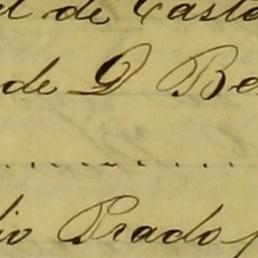 d de Casta
de D Be
io Prado